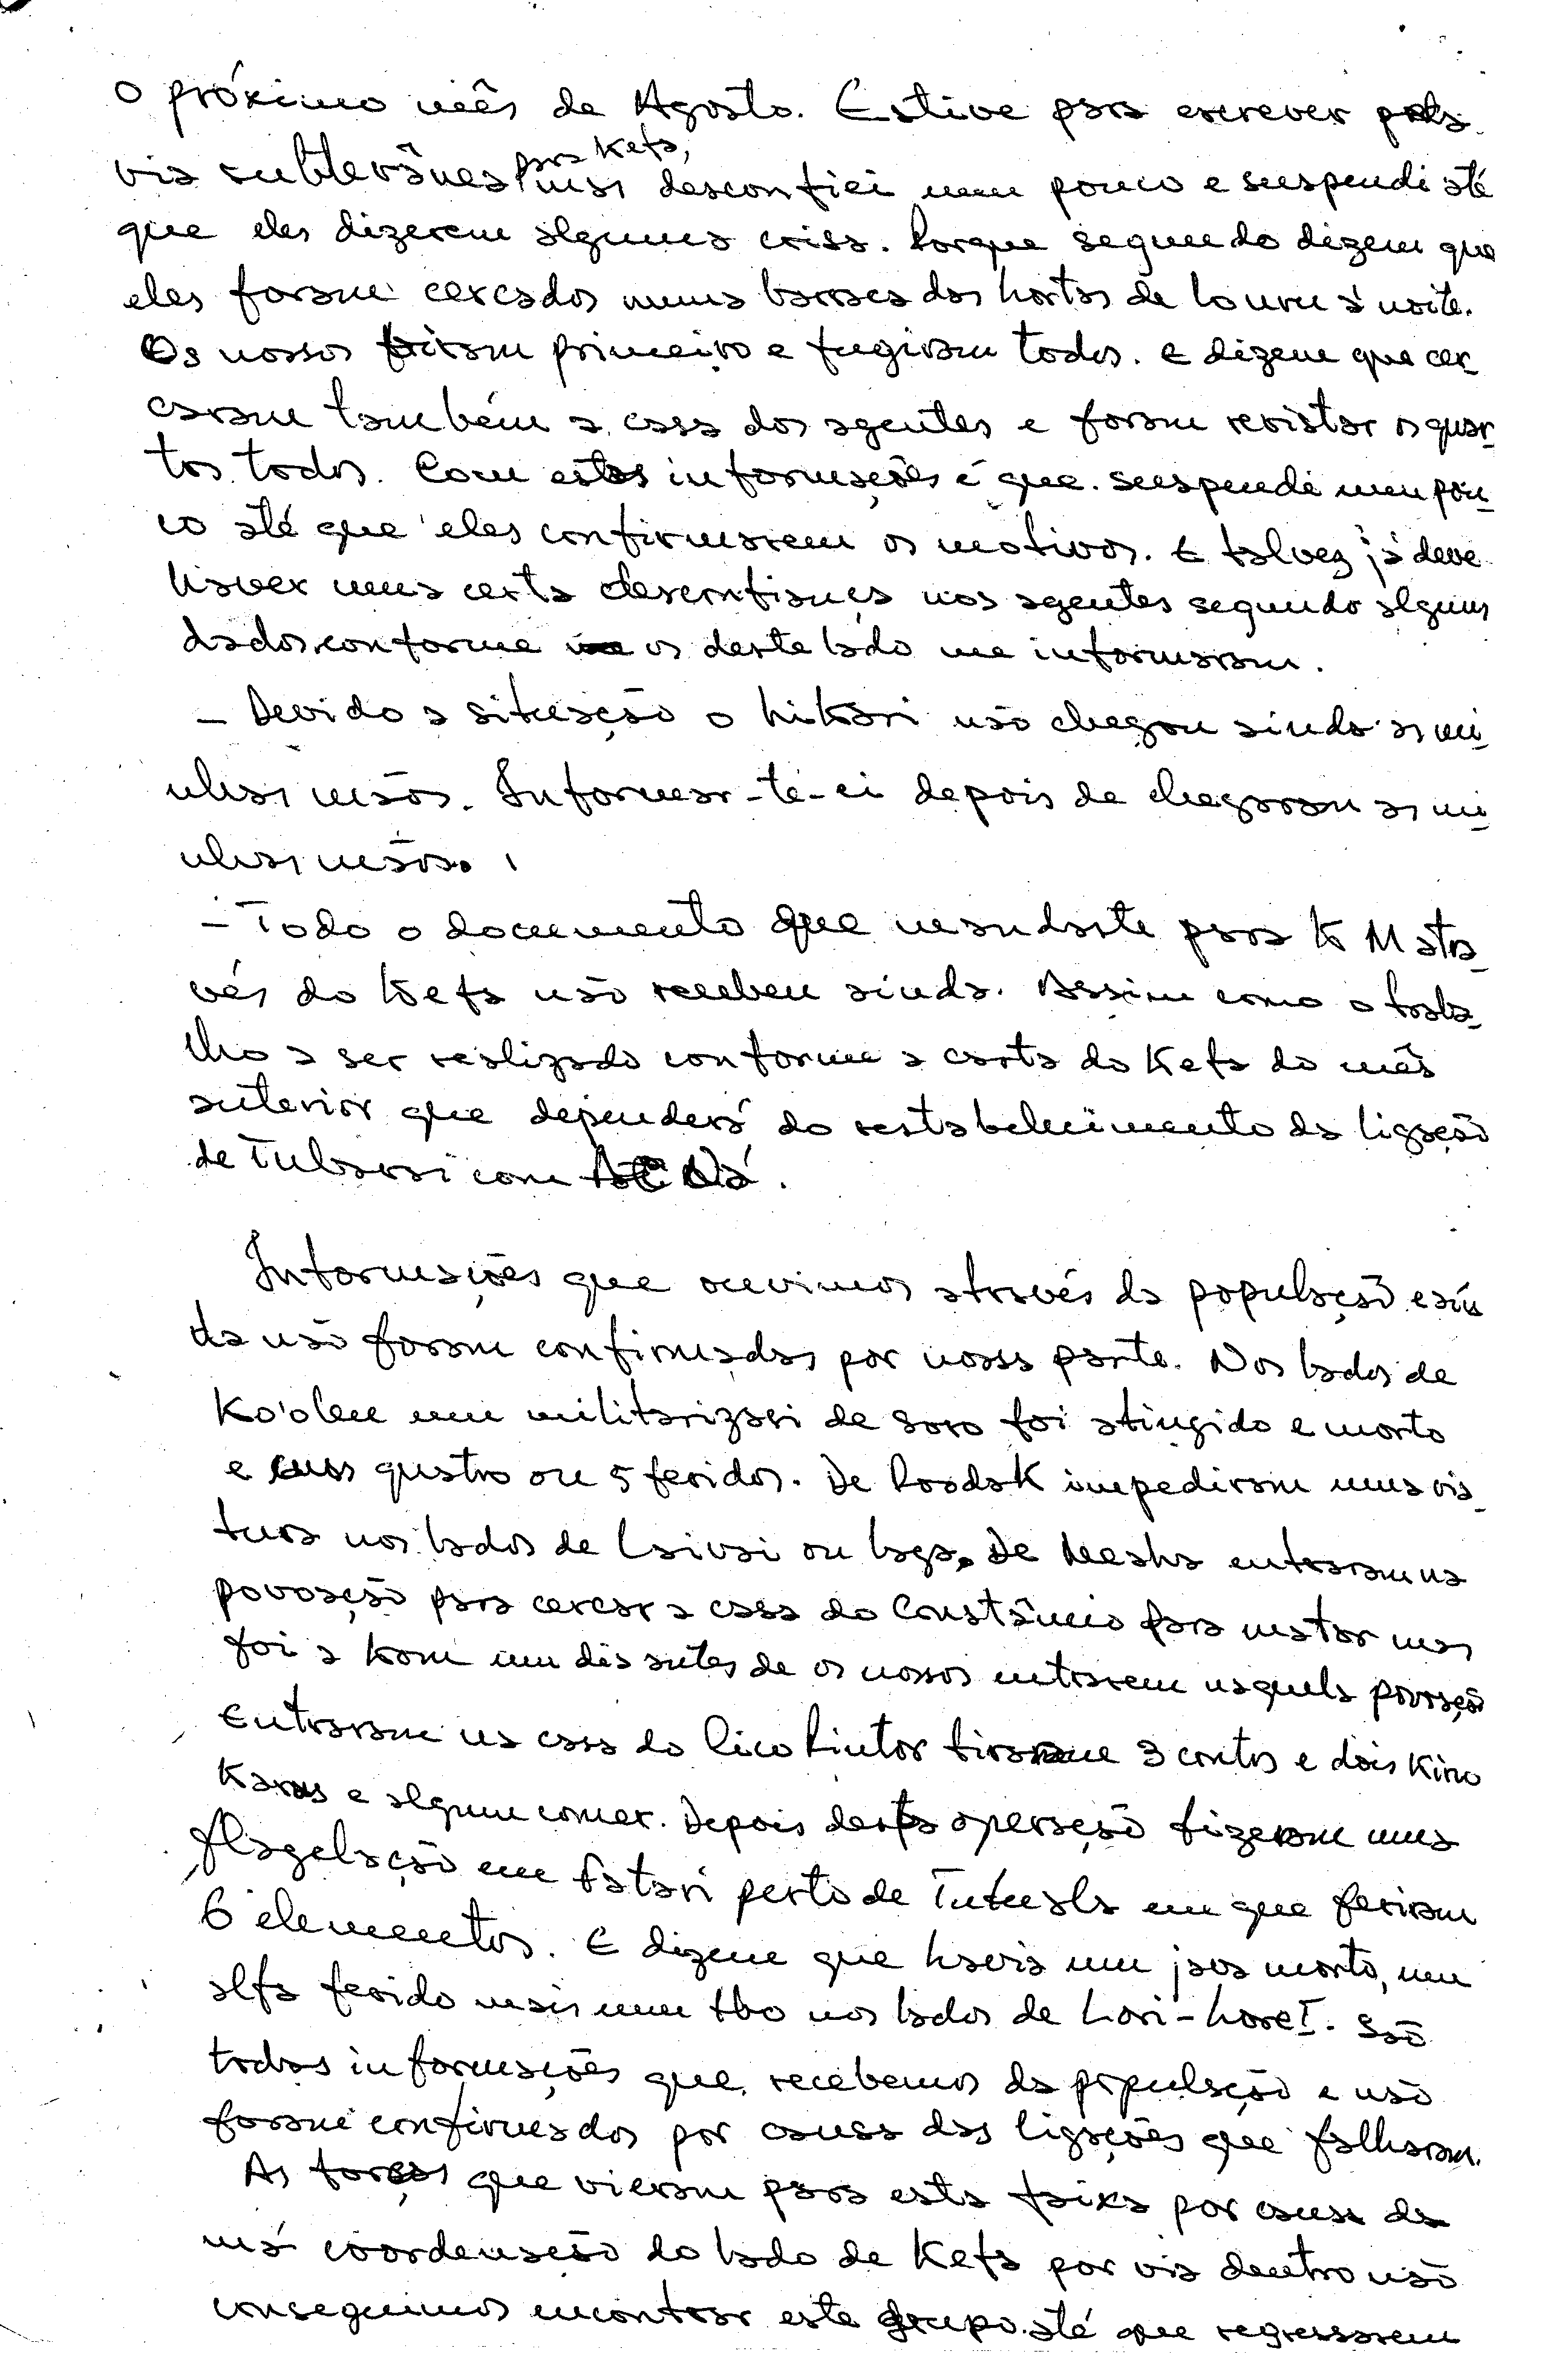 o próximo mês de Agosto. Estive para escrever pela
via subterânea para Kefa, mas desconfiei um pouco e suspendi até
que eles dizerem alguma coisa. Porque segundo dizem que
eles foram cercados numa barraca das hortas de Louru à noite.
Os nossos tiram primeiro e fugiram todos. E dizem que cer-
caram também a casa dos agentes e foram revistar os quar-
tos todos. Com estas informações é que suspendi um pou-
co até que eles confirmarem os motivos. E talvez já deve
haver uma certa desconfiança nos agentes segundo alguns
dados conforme os deste lado me informaram.
- Devido a situação o hikari não chegou ainda as mi-
nhas mãos. Informar-te-ei depois de chegaram as mi-
nhas mãos.
- Todo o documento que mandaste para K M atra-
vés do Kefa não recebeu ainda. Assim como o traba-
lho a ser realizado conforme a carta do Kefa do mês
anterior que dependerá do restabelecimento da ligação
de Tubarai com
Informações que ouvimos através da população e ain-
da não foram confirmadas por nossa parte. Nos lados de
Ko'oleu um militarizasi de soro foi atingido e morto
e uns quatro ou 5 feridos. De Roodak impediram uma via-
tura nos lados de Laivai ou Laga. De Meaha entraram na
povoação para cercar a casa do Constâncio para matar mas
foi a kom um dia antes de os nossos entrarem naquela povoação
Entraram na casa do Rico Pintor tiraram 3 contos e dois kino
karas e algum comer. Depois desta operação fizeram uma
flagelação em Fatari perto de Tutuala em que feriram
6 elementos. E dizem que havia um java morto, um
alfa ferido mais um tbo nos lados de Lori-Lore I. São
todas informações que recebemos da população e não
foram confirmados por causa das ligações que falharam.
As forças que vieram para esta faixa por causa da
má coordenação do lado de Kefa por via dentro não
conseguimos encontrar este grupo até que regressarem